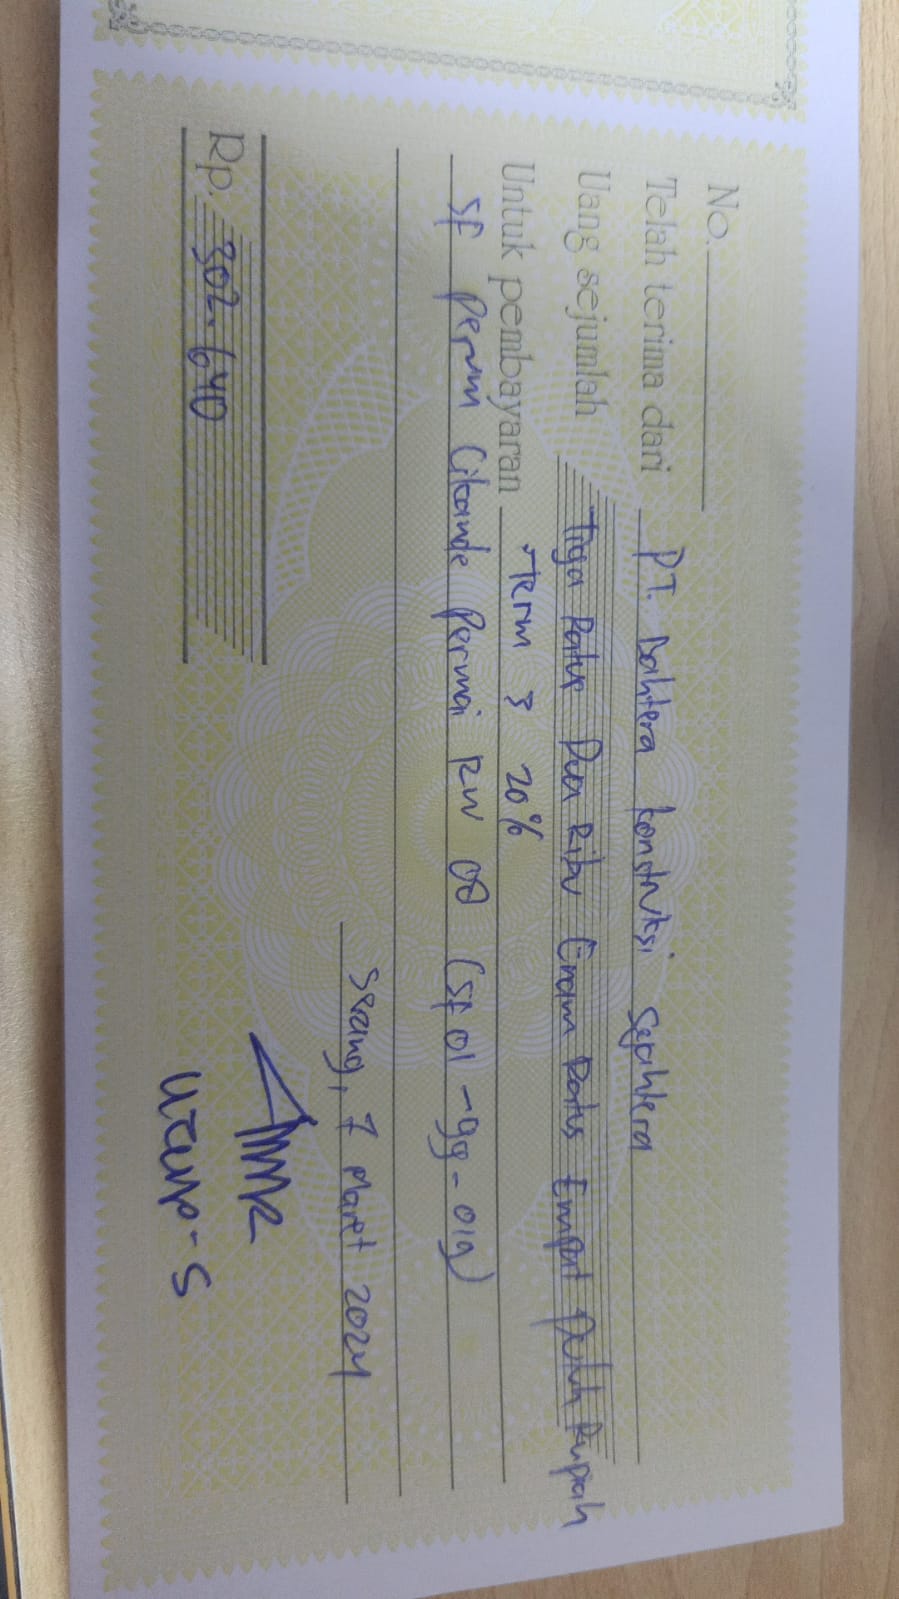 No.
Telah terima dari PT. Bahtera Konstruksi Sejahtera
Uang sejumlah Tiga Ratus Dua Ribu Enam Ratus Empat Puluh Rupiah
Untuk pembayaran Term 3 20%
SF Perum Cikande Permai RW 08 (SF 01 - 99 - 019)
Serang, 7 Maret 2024
Rp. 302.640